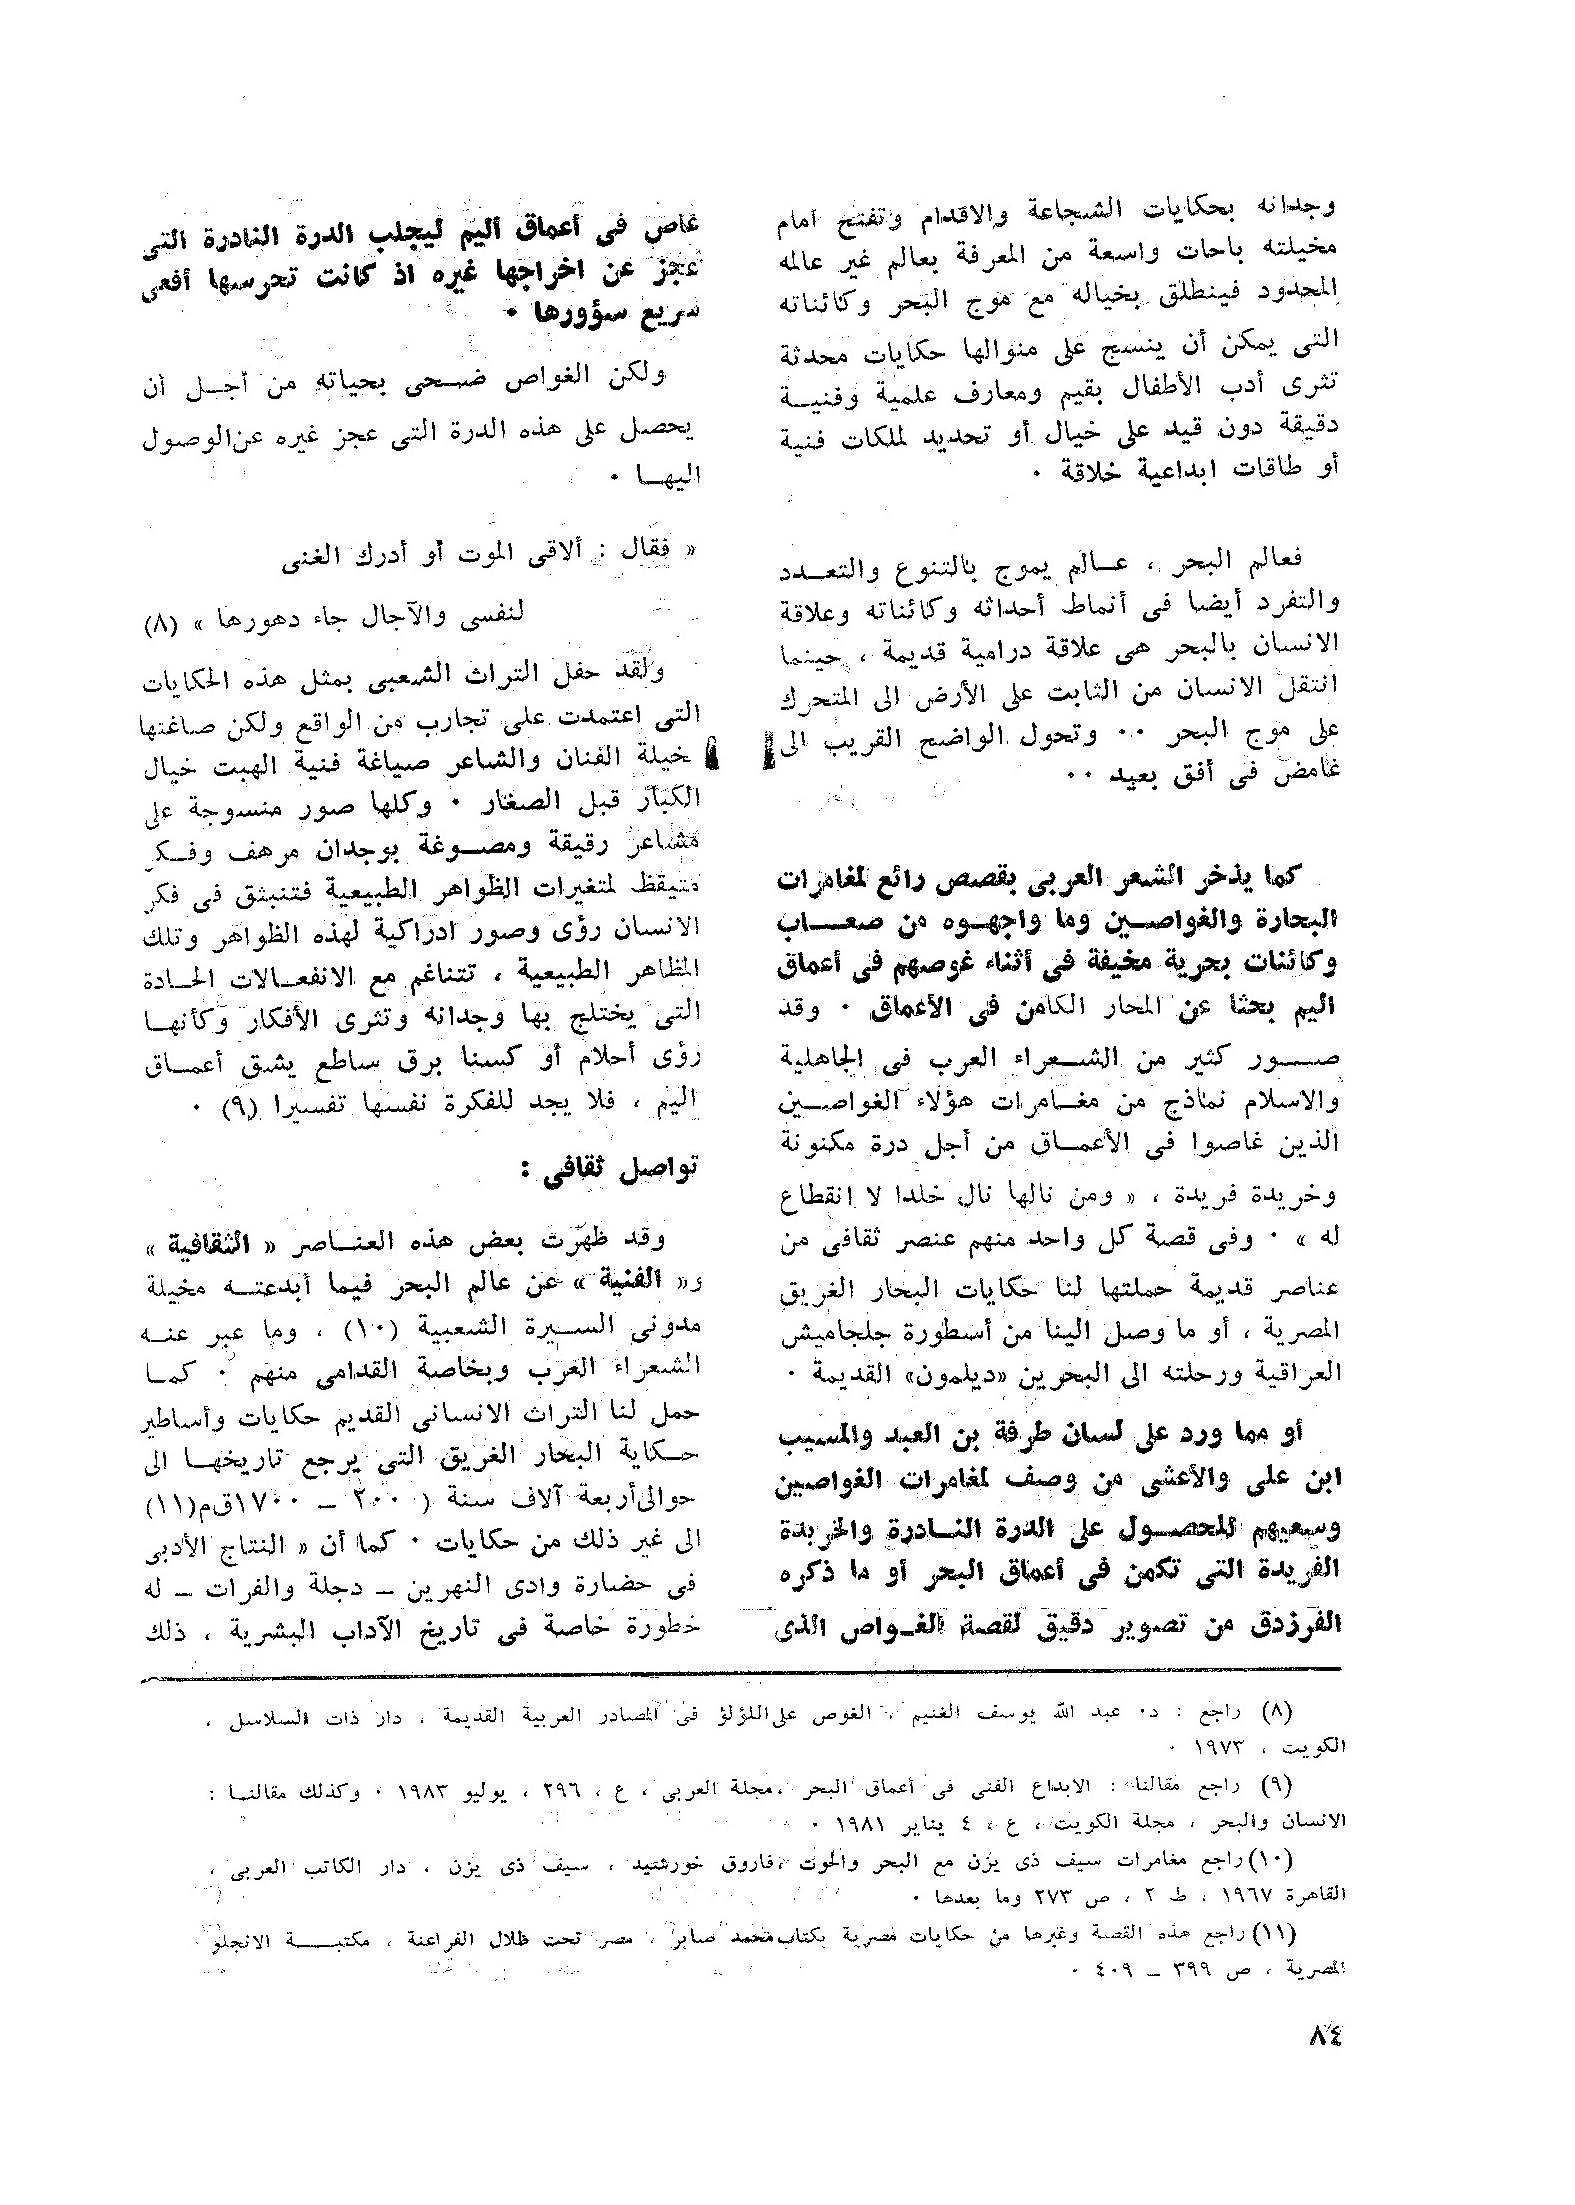 وجدانه بحكايات الشجاعة والاقدام وتفتح أمام
مخيلته باحات واسعة من المعرفة بعالم غير عالمه
المحدود فينطلق بخياله مع موج البحر وكائناته
التى يمكن أن ينسج على منوالها حكايات محدثة
تثرى أدب الأطفال بقيم ومعارف علمية وفنيــة
دقيقة دون قيد على خيال أو تحديد لملكات فنية
أو طاقات ابداعية خلاقة ٠
فعالم البحر ، عــالم يموج بالتنوع والتعــدد
والتفرد أيضا فى أنماط أحداثه وكائناته وعلاقة
الانسان بالبحر هى علاقة درامية قديمة ، حينما
انتقل الانسان من الثابت على الأرض الى المتحرك
على موج البحر ٠٠ وتحول الواضح القريب الى
غامض فى أفق بعيد ٠٠
كما يذخر الشعر العربى بقصص رائع لمغامرات
البحارة والغواصــين وما واجهــوه من صعــاب
وكائنات بحرية مخيفة فى أثناء غوصهم فى أعماق
اليم بحثا عن المحار الكامن فى الأعماق ٠ وقد
صــور كثير من الشــعراء العرب فى الجاهلية
والاسلام نماذج من مغــامرات هؤلاء الغواصــين
الذين غاصوا فى الأعمــاق من أجل درة مكنونة
وخريدة فريدة ، « ومن نالها نال خلدا لا انقطاع
له » ٠ وفى قصة كل واحد منهم عنصر ثقافى من
عناصر قديمة حملتها لنا حكايات البحار الغريق
المصرية ، أو ما وصل الينا من أسطورة جلجاميش
العراقية ورحلته الى البحرين «ديلمون» القديمة ٠
أو مما ورد على لسان طرفة بن العبد والمسيب
ابن على والأعشى من وصف لمغامرات الغواصين
وسعيهم للحصــول على الدرة النــادرة والخريدة
الفريدة التى تكمن فى أعماق البحر أو ما ذكره
الفرزدق من تصوير دقيق لقصة الغــواص الذى
غاص فى أعماق اليم ليجلب الدرة النادرة التى
عجز عن اخراجها غيره اذ كانت تحرسها أفعى
سريع سؤورها ٠
ولكن الغواص ضــحى بحياته من أجــل أن
يحصل على هذه الدرة التى عجز غيره عن الوصول
اليهــا ٠
« فقال : ألاقى الموت أو أدرك الغنى
لنفسى والآجال جاء دهورها » (٨)
ولقد حفل التراث الشعبى بمثل هذه الحكايات
التى اعتمدت على تجارب من الواقع ولكن صاغتها
خيلة الفنان والشاعر صياغة فنية الهبت خيال
الكبار قبل الصغار ٠ وكلها صور منسوجة على
مشاعر رقيقة ومصــوغة بوجدان مرهف وفــكر
متيقظ لمتغيرات الظواهر الطبيعية فتنبثق فى فكر
الانسان رؤى وصور ادراكية لهذه الظواهر وتلك
المظاهر الطبيعية ، تتناغم مع الانفعــالات الحــادة
التى يختلج بها وجدانه وتثرى الأفكار وكأنهــا
رؤى أحلام أو كسنا برق ساطع يشق أعمــاق
اليم ، فلا يجد للفكرة نفسها تفسيرا (٩) ٠
تواصل ثقافى :
وقد ظهرت بعض هذه العنــاصر « الثقافية »
و« الفنية » عن عالم البحر فيما أبدعتــه مخيلة
مدونى الســيرة الشعبية (١٠) ، وما عبر عنــه
الشعراء العرب وبخاصة القدامى منهم ٠ كمــا
حمل لنا التراث الانسانى القديم حكايات وأساطير
حــكاية البحار الغريق التى يرجع تاريخهــا الى
حوالى أربعة آلاف سنة ( ٢٠٠٠ – ١٧٠٠ق٠م(١١)
الى غير ذلك من حكايات ٠ كما أن « النتاج الأدبى
فى حضارة وادى النهرين – دجلة والفرات – له
خطورة خاصة فى تاريخ الآداب البشرية ، ذلك
(٨) راجع : د٠ عبد الله يوسف الغنيم ، الغوص على اللؤلؤ فى المصادر العربية القديمة ، دار ذات السلاسل ،
الكويت ، ١٩٧٣ ٠
(٩) راجع مقالنا : الابداع الفنى فى أعماق البحر ، مجلة العربى ، ع ، ٢٩٦ ، يوليو ١٩٨٣ ٠ وكذلك مقالنــا :
الانسان والبحر ، مجلة الكويت ، ع ، ٤ يناير ١٩٨١ ٠
(١٠) راجع مغامرات سيف ذى يزن مع البحر والحوت ، فاروق خورشيد ، سيف ذى يزن ، دار الكاتب العربى ،
القاهرة ١٩٦٧ ، ط ٢ ، ص ٢٧٣ وما بعدها ٠
(١١) راجع هذه القصة وغيرها من حكايات مصرية بكتاب محمد صابر ، مصر تحت ظلال الفراعنة ، مكتبــة الانجلو
المصرية ، ص ٣٩٩ – ٤٠٩ ٠
٨٤